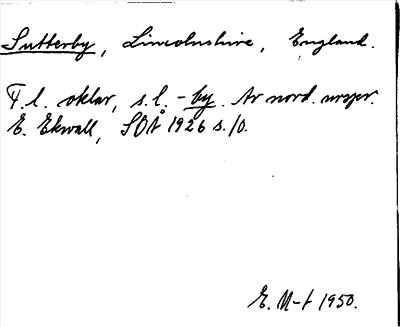 Sutterby, Lincolnshire, England.
F.l. oklar, s.l. -by. Av nord. urspr.
E. Ekwall, SOÅ 1926 s. 10.
E. M-t 1950.